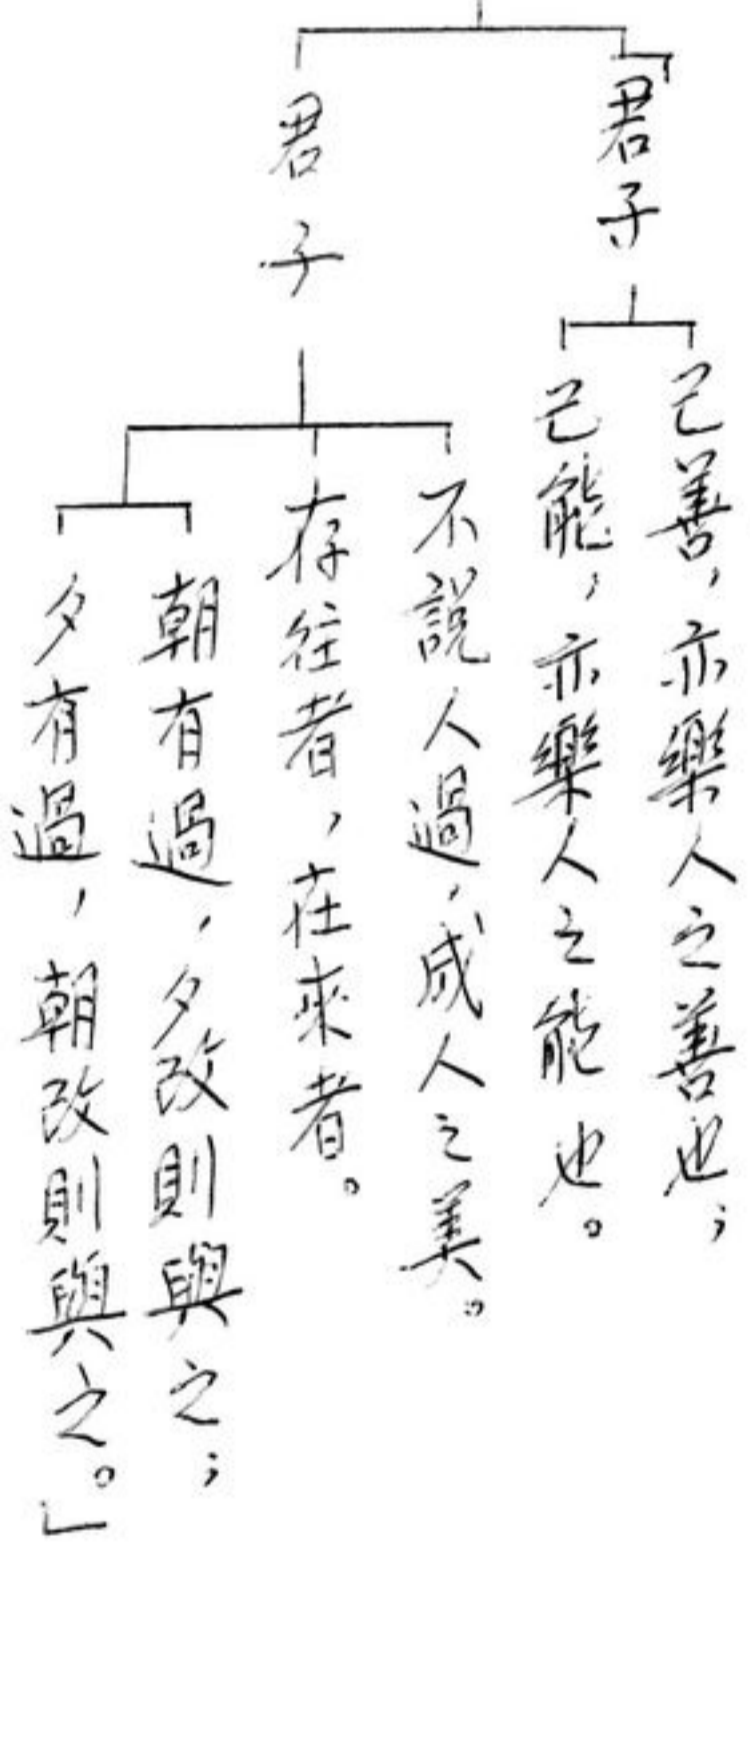 「君子
己善，亦樂人之善也；
己能，亦樂人之能也。
君子
不說人過，成人之美。
存往者，在來者。
朝有過，夕改則與之；
夕有過，朝改則與之。」